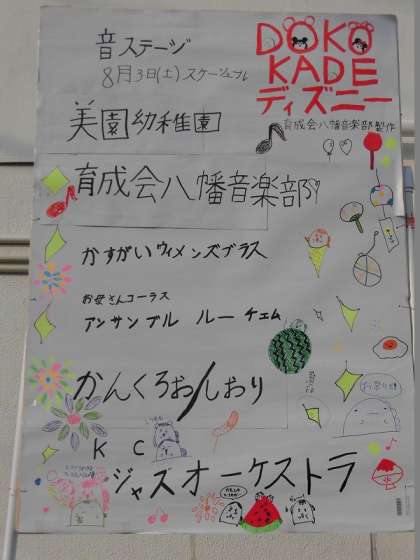 音ステージ
8月3日(土)スケージュル
DOKO
KADE
ディズニー
育成会八幡音楽部製作
美園幼稚園
育成会八幡音楽部
かすがいウィメンズブラス
お母さんコーラス
アンサンブル ルーチェム
かんくろお/しおり
KC
ジャズオーケストラ